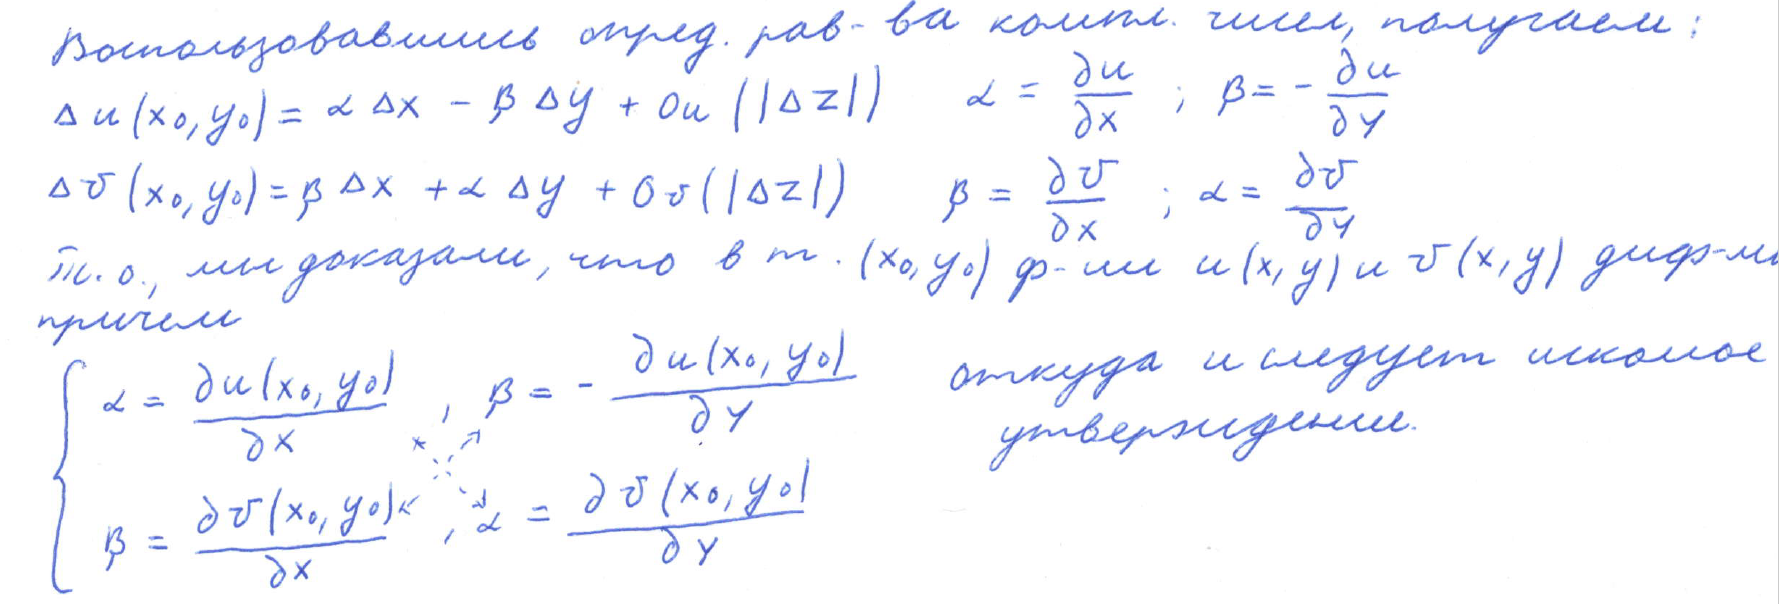 Воспользовавшись опред. рав-ва компл. чисел, получаем:
Δu(x₀,y₀) = αΔx − βΔy + Ou(|Δz|) α = ∂u/∂x ; β = − ∂u/∂y
Δv(x₀,y₀) = βΔx + αΔy + Ov(|Δz|) β = ∂v/∂x ; α = ∂v/∂y
Т.о., мы доказали, что в т. (x₀,y₀) ф-ии u(x,y) и v(x,y) диф-мы
причем
α = ∂u(x₀,y₀)/∂x , β = − ∂u(x₀,y₀)/∂y откуда и следует искомое
утверждение.
β = ∂v(x₀,y₀)/∂x , α = ∂v(x₀,y₀)/∂y